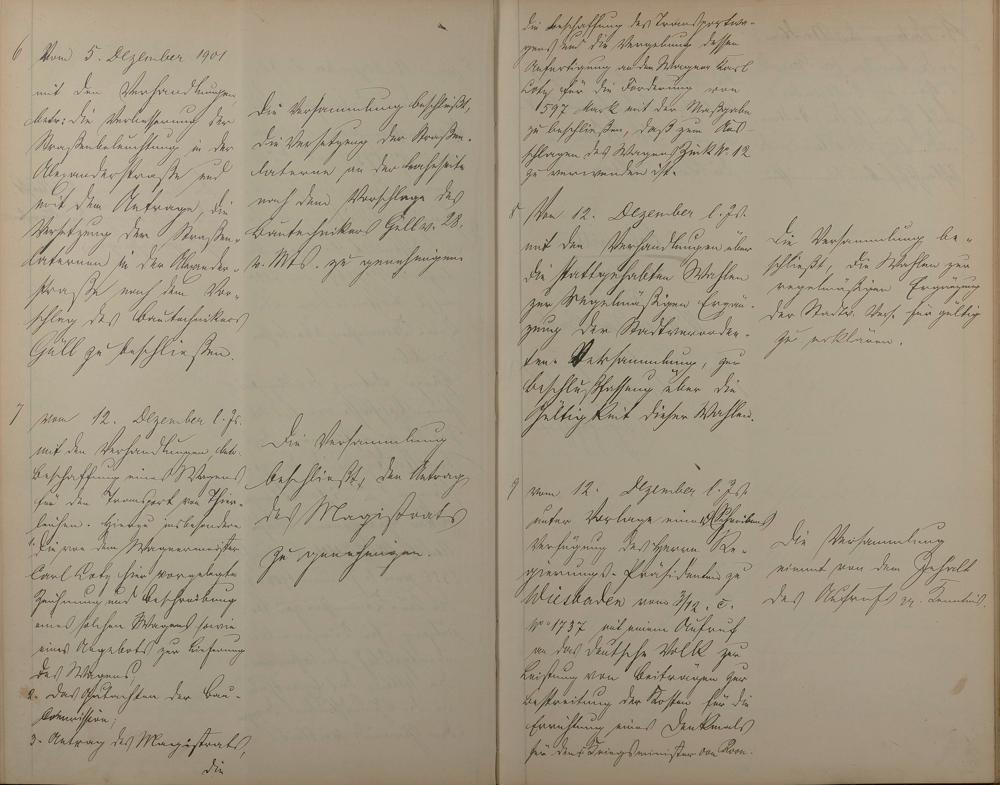 6 Vom 5. Dezember 1901
mit den Verhandlungen
betr: die Verbesserung der
Straßenbeleuchtung in der
Alexanderstraße und
mit dem Antrage, die
Versetzung der Straßen-
laternen in der Alexander-
straße nach dem Vor-
schlag des Bautechnikers
Güll zu beschließen.
Die Versammlung beschließt,
die Versetzung der Straßen-
laterne an der
nach dem Vorschlage des
Bautechnikers Güll v. 28.
v. Mts. zu genehmigen
7 vom 12. Dezember l. Js.
mit den Verhandlungen, betr.
Beschaffung eines Wagens
für den Transport von Thier-
leichen. Hierzu insbesondere
1. die von dem Wagnermeister
Carl Lotz hier vorgelegte
Zeichnung und Beschreibung
eines solchen Wagens sowie
eines Angebots zur Lieferung
des Wagens,
2. das Gutachten der Bau-
commission;
3. Antrag des Magistrats,
die
Die Versammlung
beschließt, den Antrag
des Magistrats
zu genehmigen.
die Beschaffung des Transportwa-
gens und die Vergebung dessen
Anfertigung an den Wagner Karl
Lotz für die Forderung von
597 Mark mit der Maßgabe
zu beschließen, daß zum Aus-
schlagen des Wagens Zink No 12
zu verwenden ist.
8 Vom 12. Dezember l. Js.
mit den Verhandlungen über
die stattgehabten Wahlen
zur regelmäßigen Ergän-
zung der Stadtverordne-
ten-Versammlung, zur
Beschlußfassung über die
Gültigkeit dieser Wahlen.
Die Versammlung be-
schließt, die Wahlen zur
regelmäßigen Ergänzung
der Stadtv. Vers. für gültig
zu erklären.
9 vom 12. Dezember l. Js.
unter Vorlage eines Schreibens
Verfügung des Herrn Re-
gierungs-Präsidenten zu
Wiesbaden vom 3/12. c.
No 1737 mit einem Aufruf
an das deutsche Volk zur
Leistung von Beiträgen zur
Bestreitung der Kosten für die
Errichtung eines Denkmals
für den Kriegsminister von Roon.
Die Versammlung
nimmt von dem Inhalt
des Aufrufs Kenntnis.